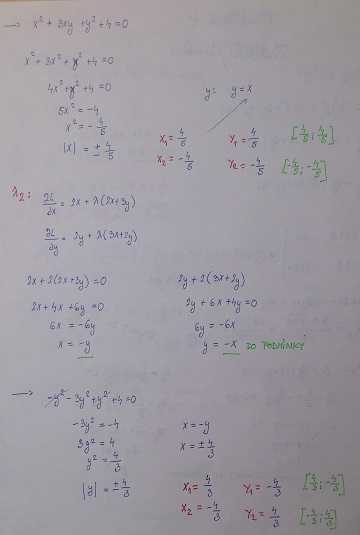 → x² + 3xy + y² + 4 = 0
x² + 3x² + x² + 4 = 0
4x² + x² + 4 = 0
5x² = -4
y: y = x
x² = -4/5
|x| = ± 4/5
x₁ = 4/5 y₁ = 4/5 [4/5; 4/5]
x₂ = -4/5 y₂ = -4/5 [-4/5; -4/5]
λ₂:
∂L/∂x = 2x + λ(2x+3y)
∂L/∂y = 2y + λ(3x+2y)
2x + 2(2x+3y) = 0 2y + 2(3x+2y)
2x + 4x + 6y = 0 2y + 6x + 4y = 0
6x = -6y 6y = -6x
x = -y y = -x DO PODMÍNKY
→ -y² - 3y² + y² + 4 = 0
-3y² = -4 x = -y
3y² = 4 x = ± 4/3
y² = 4/3
|y| = ± 4/3
x₁ = 4/3 y₁ = -4/3 [4/3; -4/3]
x₂ = -4/3 y₂ = 4/3 [-4/3; 4/3]